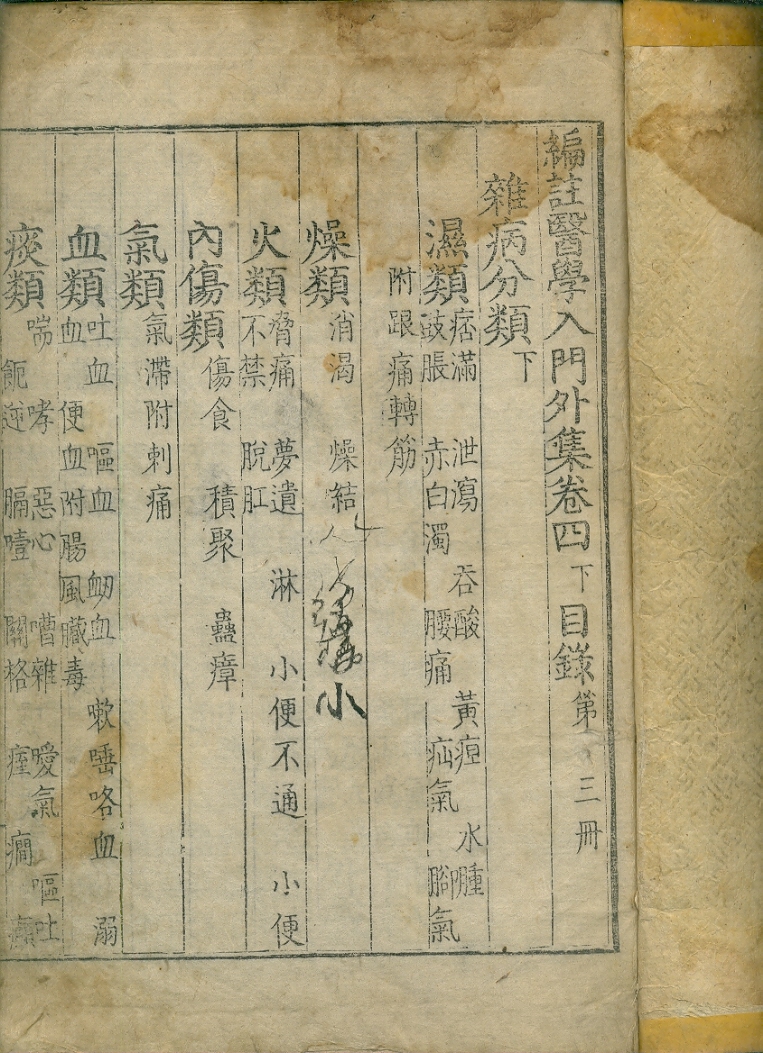 編註醫學入門外集卷四下目錄第三冊
雜病分類下
濕類
痞滿 泄瀉 吞酸 黃疸 水腫
鼓脹 赤白濁 腰痛 疝氣 腳氣
附跟痛轉筋
燥類 消渴 燥結
小
火類
脅痛 夢遺 淋 小便不通 小便
不禁 脫肛
內傷類 傷食 積聚 蟲瘴
氣類 氣滯附刺痛
血類
吐血 嘔血 衂血 嗽唾咯血 溺
血 便血附腸風臟毒
痰類
喘 哮 惡心 嘈雜 噯氣 嘔吐
逆 膈噎 關格 痓